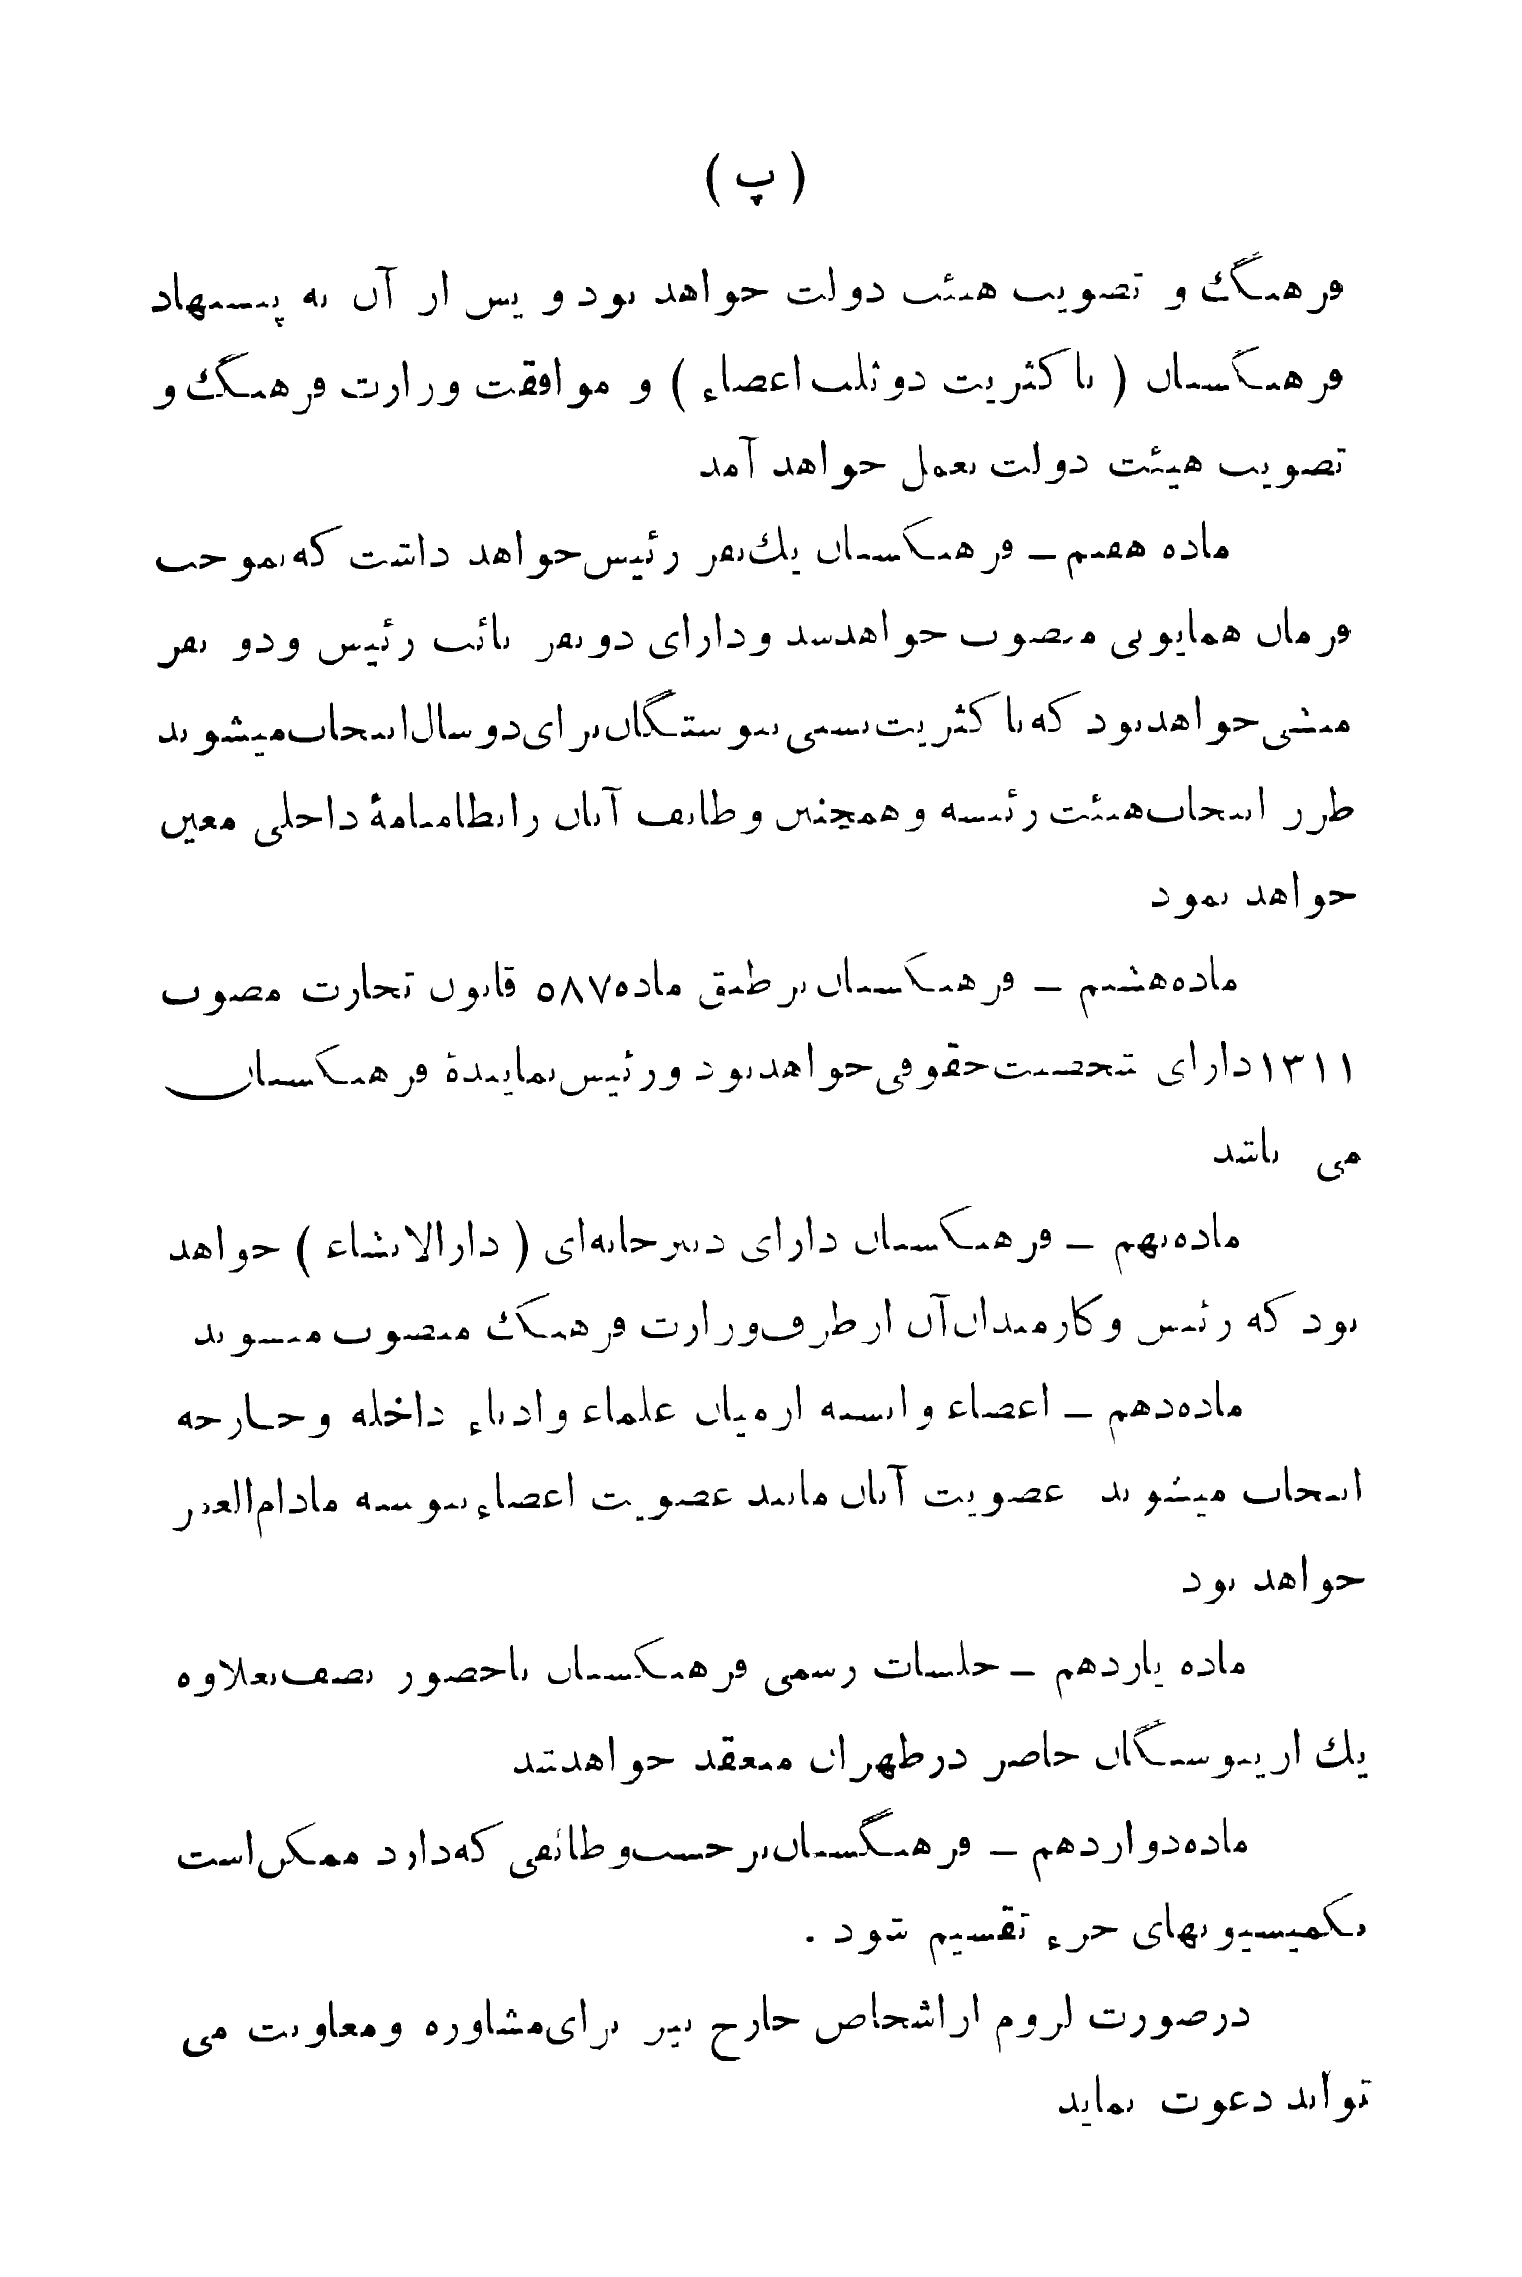 ( پ )
فرهنگ و تصویب هیئت دولت خواهد بود و پس از آن به پیشنهاد
فرهنگستان ( با کثریت دو ثلث اعضاء ) و موافقت وزارت فرهنگ و
تصویب هیئت دولت بعمل خواهد آمد
ماده هفتم ــ فرهنگستان یك نفر رئیس خواهد داشت که بموجب
فرمان همایونی منصوب خواهد شد و دارای دو نفر نائب رئیس و دو نفر
منشی خواهد بود که با کثریت نسبی پیوستگان برای دو سال انتخاب میشوند
طرز انتخاب هیئت رئیسه و همچنین وظایف آنان را نظامنامهٔ داخلی معین
خواهد نمود
ماده هشتم ــ فرهنگستان بر طبق ماده ۵۸۷ قانون تجارت مصوب
۱۳۱۱ دارای شخصیت حقوقی خواهد بود و رئیس نمایندهٔ فرهنگستان
می باشد
ماده نهم ــ فرهنگستان دارای دبیرخانه‌ای ( دارالانشاء ) خواهد
بود که رئیس و کارمندان آن از طرف وزارت فرهنگ منصوب میشوند
ماده دهم ــ اعضاء وابسته از میان علماء و ادباء داخله و خارجه
انتخاب میشوند عضویت آنان مانند عضویت اعضاء پیوسته مادام‌العمر
خواهد بود
ماده یازدهم ــ جلسات رسمی فرهنگستان با حضور نصف بعلاوه
یك از پیوستگان حاضر در طهران منعقد خواهد شد
ماده دوازدهم ــ فرهنگستان بر حسب وظائفی که دارد ممکن است
بکمیسیونهای جزء تقسیم شود .
در صورت لزوم از اشخاص خارج نیز برای مشاوره و معاونت می
تواند دعوت نماید